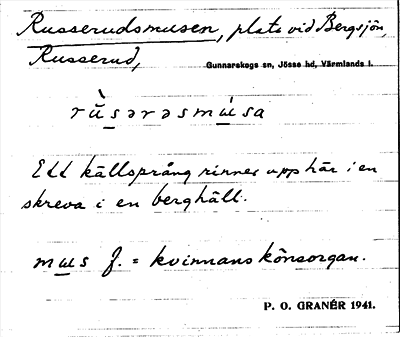 Russerudsmusen, plats vid Bergsjön,
Russerud,
Gunnarskogs sn, Jösse hd, Värmlands l.
rŭ̀sərəsmúsa
Ett källsprång rinner upp här i en
skreva i en berghäll.
mus f. = kvinnans könsorgan.
P. O. GRANÉR 1941.